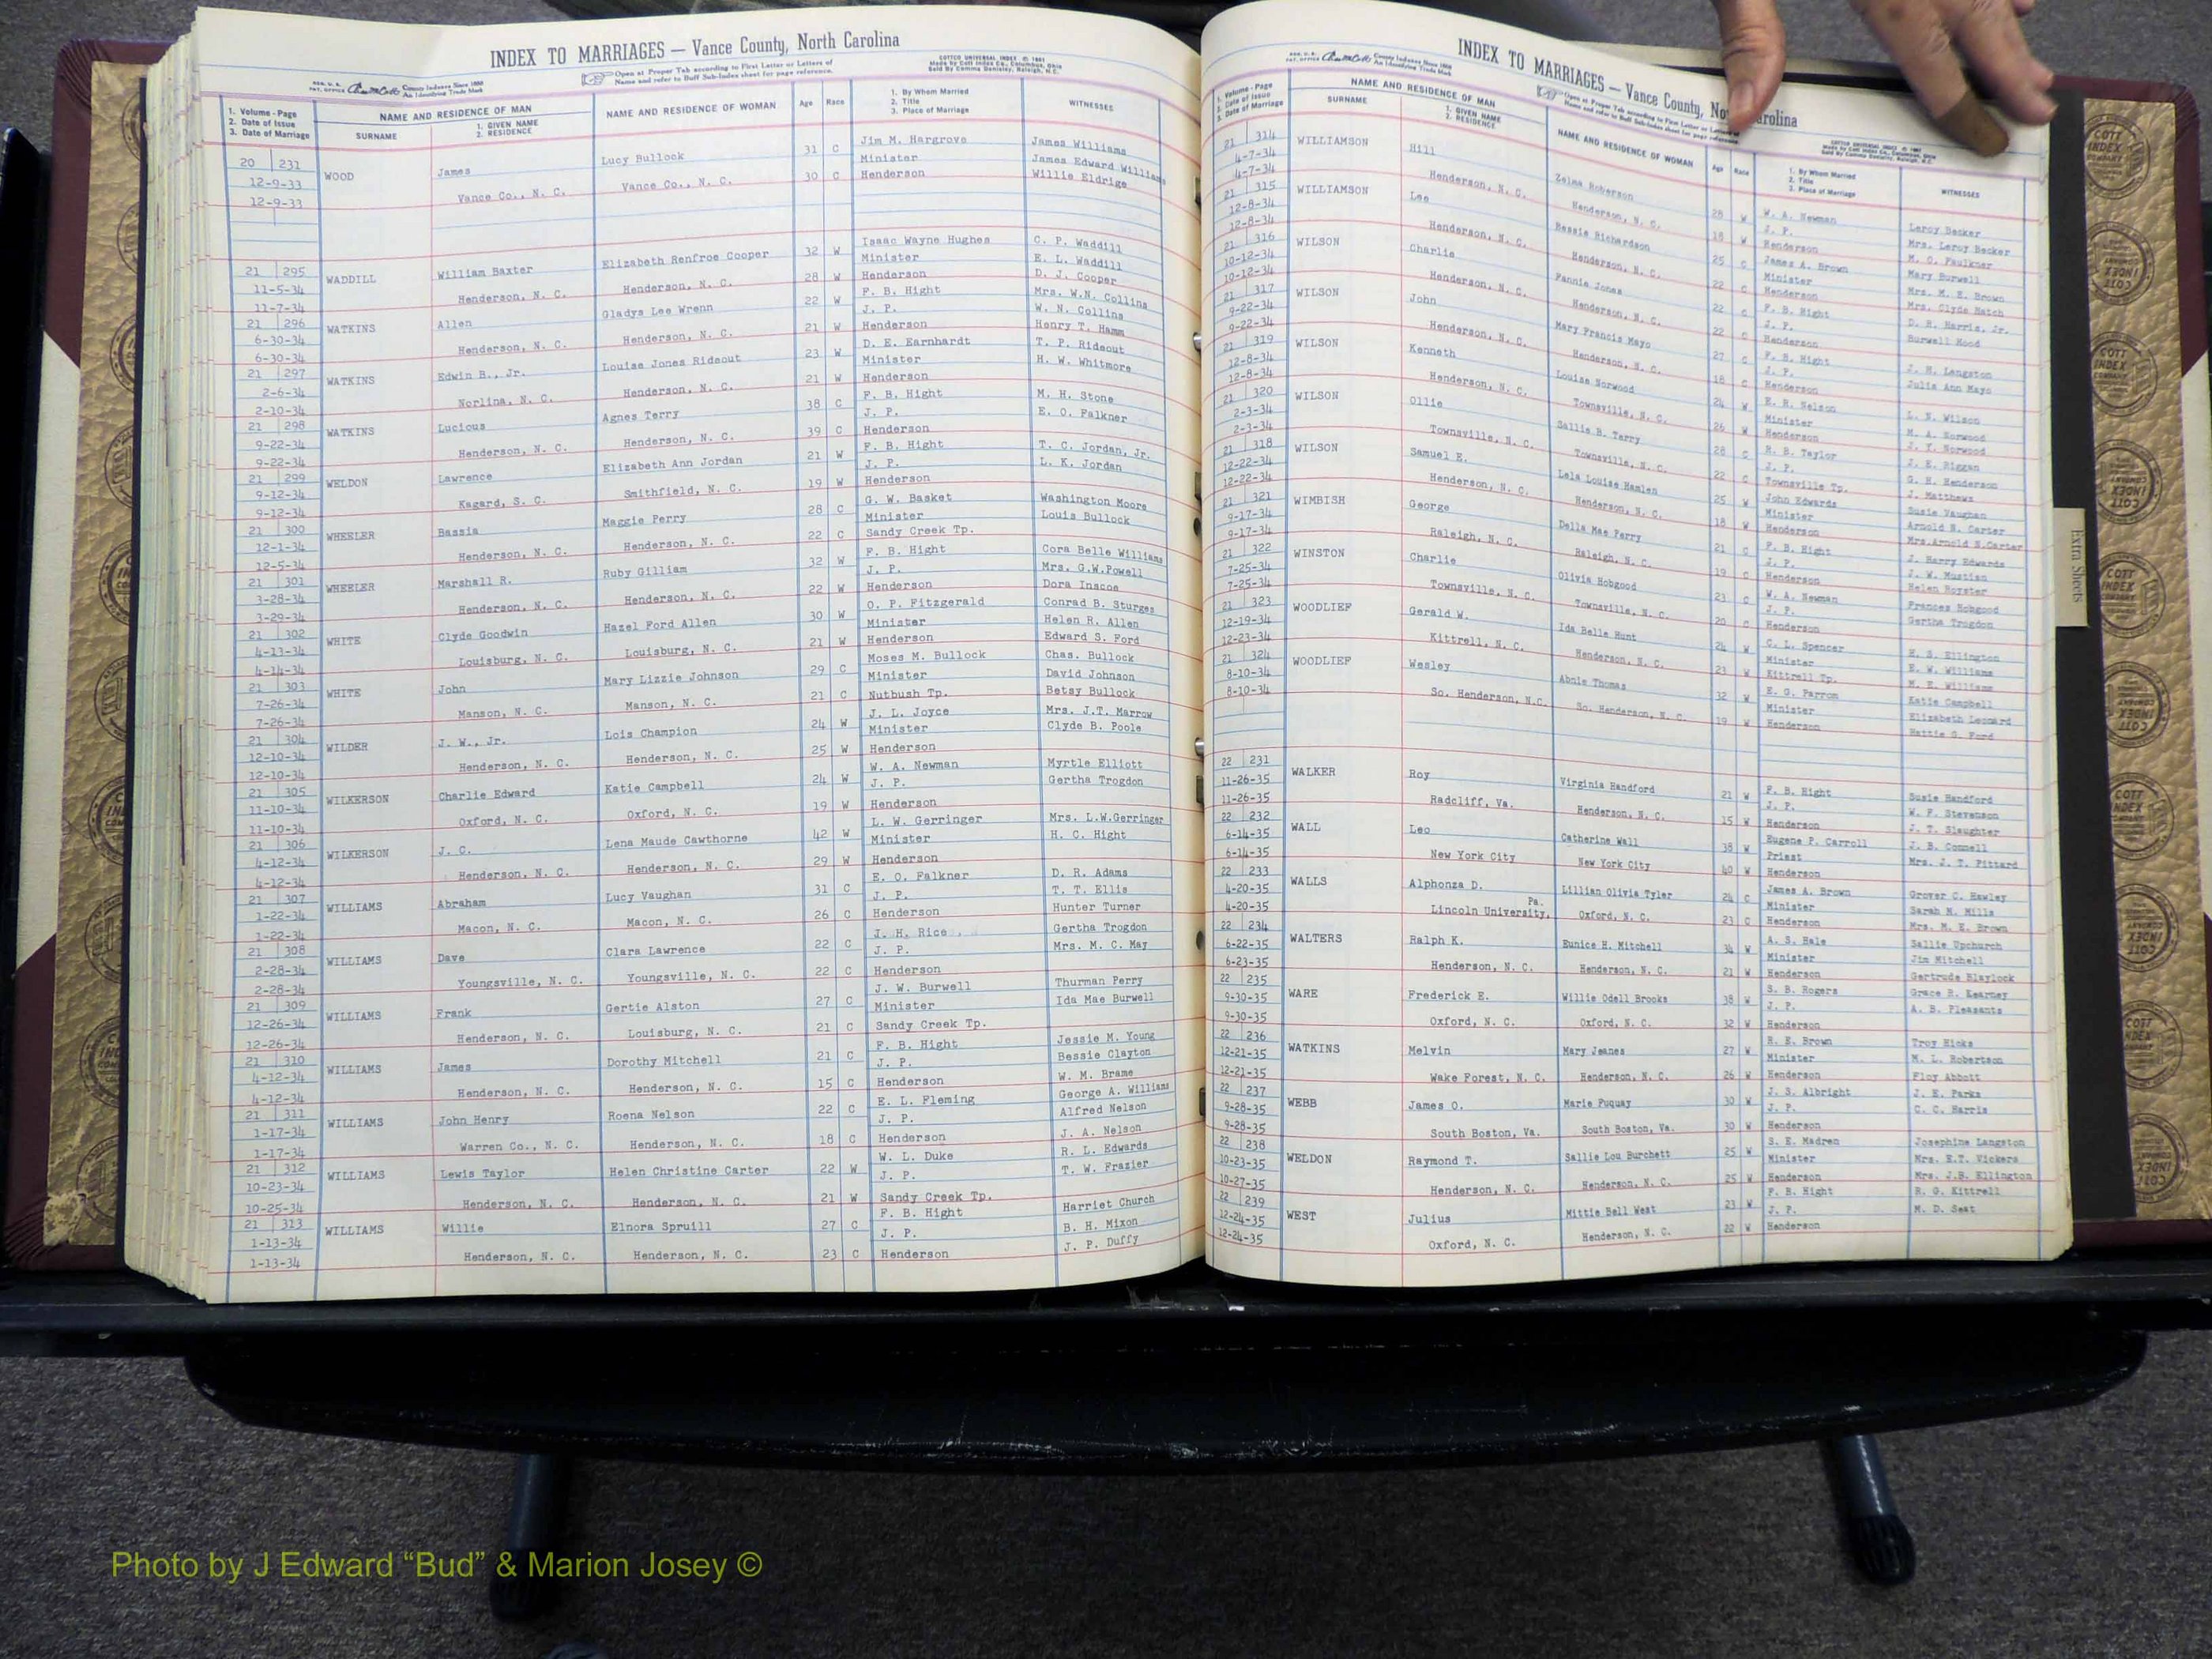 INDEX TO MARRIAGES — Vance County, North Carolina
REG. U. S. PAT. OFFICE County Indexes Since 1888 An Identifying Trade Mark
Open at Proper Tab according to First Letter or Letters of Name and refer to Buff Sub-Index sheet for page reference.
COTTCO UNIVERSAL INDEX © 1961 Made by Cott Index Co., Columbus, Ohio Sold By Commo Danieley, Raleigh, N.C.
1. Volume - Page 2. Date of Issue 3. Date of Marriage
NAME AND RESIDENCE OF MAN
SURNAME 1. GIVEN NAME 2. RESIDENCE
NAME AND RESIDENCE OF WOMAN
Age Race
1. By Whom Married 2. Title 3. Place of Marriage
WITNESSES
20 231 WOOD James Lucy Bullock 31 C Jim M. Hargrove James Williams
12-9-33 Vance Co., N. C. Vance Co., N. C. 30 C Minister James Edward Williams
12-9-33 Henderson Willie Eldrige
21 295 WADDILL William Baxter Elizabeth Renfroe Cooper 32 W Isaac Wayne Hughes C. P. Waddill
11-5-34 Henderson, N. C. Henderson, N. C. 28 W Minister E. L. Waddill
11-7-34 Henderson D. J. Cooper
21 296 WATKINS Allen Gladys Lee Wrenn 22 W F. B. Hight Mrs. W.N. Collins
6-30-34 Henderson, N. C. Henderson, N. C. 21 W J. P. W. N. Collins
6-30-34 Henderson Henry T. Hamm
21 297 WATKINS Edwin B., Jr. Louise Jones Rideout 23 W D. E. Earnhardt T. P. Rideout
2-6-34 Norlina, N. C. Henderson, N. C. 21 W Minister H. W. Whitmore
2-10-34 Henderson
21 298 WATKINS Lucious Agnes Terry 38 C F. B. Hight M. H. Stone
9-22-34 Henderson, N. C. Henderson, N. C. 39 C J. P. E. O. Falkner
9-22-34 Henderson
21 299 WELDON Lawrence Elizabeth Ann Jordan 21 W F. B. Hight T. C. Jordan, Jr.
9-12-34 Kagard, S. C. Smithfield, N. C. 19 W J. P. L. K. Jordan
9-12-34 Henderson
21 300 WHEELER Bassia Maggie Perry 28 C G. W. Basket Washington Moore
12-1-34 Henderson, N. C. Henderson, N. C. 22 C Minister Louis Bullock
12-5-34 Sandy Creek Tp.
21 301 WHEELER Marshall R. Ruby Gilliam 32 W F. B. Hight Cora Belle Williams
3-28-34 Henderson, N. C. Henderson, N. C. 22 W J. P. Mrs. G.W.Powell
3-29-34 Henderson Dora Inscoe
21 302 WHITE Clyde Goodwin Hazel Ford Allen 30 W O. P. Fitzgerald Conrad B. Sturges
4-13-34 Louisburg, N. C. Louisburg, N. C. 21 W Minister Helen R. Allen
4-14-34 Henderson Edward S. Ford
21 303 WHITE John Mary Lizzie Johnson 29 C Moses M. Bullock Chas. Bullock
7-26-34 Manson, N. C. Manson, N. C. 21 C Minister David Johnson
7-26-34 Nutbush Tp. Betsy Bullock
21 304 WILDER J. W., Jr. Lois Champion 24 W J. L. Joyce Mrs. J.T. Marrow
12-10-34 Henderson, N. C. Henderson, N. C. 25 W Minister Clyde B. Poole
12-10-34 Henderson
21 305 WILKERSON Charlie Edward Katie Campbell 24 W W. A. Newman Myrtle Elliott
11-10-34 Oxford, N. C. Oxford, N. C. 19 W J. P. Gertha Trogdon
11-10-34 Henderson
21 306 WILKERSON J. C. Lena Maude Cawthorne 42 W L. W. Gerringer Mrs. L.W.Gerringer
4-12-34 Henderson, N. C. Henderson, N. C. 29 W Minister H. C. Hight
4-12-34 Henderson
21 307 WILLIAMS Abraham Lucy Vaughan 31 C E. O. Falkner D. R. Adams
1-22-34 Macon, N. C. Macon, N. C. 26 C J. P. T. T. Ellis
1-22-34 Henderson Hunter Turner
21 308 WILLIAMS Dave Clara Lawrence 22 C J. H. Rice Gertha Trogdon
2-28-34 Youngsville, N. C. Youngsville, N. C. 22 C J. P. Mrs. M. C. May
2-28-34 Henderson
21 309 WILLIAMS Frank Gertie Alston 27 C J. W. Burwell Thurman Perry
12-26-34 Henderson, N. C. Louisburg, N. C. 21 C Minister Ida Mae Burwell
12-26-34 Sandy Creek Tp.
21 310 WILLIAMS James Dorothy Mitchell 21 C F. B. Hight Jessie M. Young
4-12-34 Henderson, N. C. Henderson, N. C. 15 C J. P. Bessie Clayton
4-12-34 Henderson W. M. Brame
21 311 WILLIAMS John Henry Roena Nelson 22 C E. L. Fleming George A. Williams
1-17-34 Warren Co., N. C. Henderson, N. C. 18 C J. P. Alfred Nelson
1-17-34 Henderson J. A. Nelson
21 312 WILLIAMS Lewis Taylor Helen Christine Carter 22 W W. L. Duke R. L. Edwards
10-23-34 Henderson, N. C. Henderson, N. C. 21 W J. P. T. W. Frazier
10-25-34 Sandy Creek Tp.
21 313 WILLIAMS Willie Elnora Spruill 27 C F. B. Hight Harriet Church
1-13-34 Henderson, N. C. Henderson, N. C. 23 C J. P. B. H. Mixon
1-13-34 Henderson J. P. Duffy
INDEX TO MARRIAGES — Vance County, North Carolina
1. Volume - Page 2. Date of Issue 3. Date of Marriage
NAME AND RESIDENCE OF MAN
SURNAME 1. GIVEN NAME 2. RESIDENCE
NAME AND RESIDENCE OF WOMAN
Age Race
1. By Whom Married 2. Title 3. Place of Marriage
WITNESSES
21 314 WILLIAMSON Hill Zelma Roberson 28 W W. A. Newman Leroy Becker
4-7-34 Henderson, N. C. Henderson, N. C. 18 W J. P. Mrs. Leroy Becker
4-7-34 Henderson M. O. Faulkner
21 315 WILLIAMSON Lee Bessie Richardson 25 C James A. Brown Mary Burwell
12-8-34 Henderson, N. C. Henderson, N. C. 22 C Minister Mrs. M. E. Brown
12-8-34 Henderson Mrs. Clyde Hatch
21 316 WILSON Charlie Fannie Jones 22 C F. B. Hight D. H. Harris, Jr.
10-12-34 Henderson, N. C. Henderson, N. C. 22 C J. P. Burwell Hood
10-12-34 Henderson
21 317 WILSON John Mary Francis Mayo 27 C F. B. Hight J. H. Langston
9-22-34 Henderson, N. C. Henderson, N. C. 18 C J. P. Julia Ann Mayo
9-22-34 Henderson
21 319 WILSON Kenneth Louise Norwood 24 W E. R. Nelson L. N. Wilson
12-8-34 Henderson, N. C. Townsville, N. C. 26 W Minister M. A. Norwood
12-8-34 Henderson J. Y. Norwood
21 320 WILSON Ollie Sallie B. Terry 28 C R. B. Taylor J. E. Riggan
2-3-34 Townsville, N. C. Townsville, N. C. 22 C J. P. G. H. Henderson
2-3-34 Townsville Tp. J. Matthews
21 318 WILSON Samuel E. Lela Louise Hamlen 25 W John Edwards Susie Vaughan
12-22-34 Henderson, N. C. Henderson, N. C. 18 W Minister Arnold N. Carter
12-22-34 Henderson Mrs.Arnold N.Carter
21 321 WIMBISH George Della Mae Perry 21 C F. B. Hight J. Harry Edwards
9-17-34 Raleigh, N. C. Raleigh, N. C. 19 C J. P. J. W. Mustian
9-17-34 Henderson Helen Royster
21 322 WINSTON Charlie Olivia Hobgood 23 C W. A. Newman Frances Hobgood
7-25-34 Townsville, N. C. Townsville, N. C. 20 C J. P. Gertha Trogdon
7-25-34 Henderson
21 323 WOODLIEF Gerald W. Ida Belle Hunt 24 W C. L. Spencer E. S. Ellington
12-19-34 Kittrell, N. C. Henderson, N. C. 23 W Minister E. W. Williams
12-23-34 Kittrell Tp. M. E. Williams
21 324 WOODLIEF Wesley Abnis Thomas 32 W E. G. Farrom Katie Campbell
8-10-34 So. Henderson, N.C. So. Henderson, N. C. 19 W Minister Elizabeth Leonard
8-10-34 Henderson Hattie G. Ford
22 231 WALKER Roy Virginia Handford 21 W F. B. Hight Susie Handford
11-26-35 Radcliff, Va. Henderson, N. C. 15 W J. P. W. F. Stevenson
11-26-35 Henderson J. T. Slaughter
22 232 WALL Leo Catherine Wall 38 W Eugene P. Carroll J. B. Connell
6-14-35 New York City New York City 40 W Priest Mrs. J. T. Pittard
6-14-35 Henderson
22 233 WALLS Alphonza D. Lillian Olivia Tyler 24 C James A. Brown Grover C. Hawley
4-20-35 Lincoln University, Pa. Oxford, N. C. 23 C Minister Sarah N. Mills
4-20-35 Henderson Mrs. M. E. Brown
22 234 WALTERS Ralph K. Eunice H. Mitchell 34 W A. S. Hale Sallie Upchurch
6-22-35 Henderson, N. C. Henderson, N. C. 21 W Minister Jim Mitchell
6-23-35 Henderson Gertrude Blaylock
22 235 WARE Frederick E. Willie Odell Brooks 38 W S. B. Rogers Grace R. Kearney
9-30-35 Oxford, N. C. Oxford, N. C. 32 W J. P. A. B. Pleasants
9-30-35 Henderson
22 236 WATKINS Melvin Mary Jeanes 27 W R. E. Brown Troy Hicks
12-21-35 Wake Forest, N. C. Henderson, N. C. 26 W Minister M. L. Robertson
12-21-35 Henderson Floy Abbott
22 237 WEBB James O. Marie Fuquay 30 W J. S. Albright J. E. Parks
9-28-35 South Boston, Va. South Boston, Va. 30 W J. P. C. C. Harris
9-28-35 Henderson
22 238 WELDON Raymond T. Sallie Lou Burchett 25 W S. E. Madren Josephine Langston
10-23-35 Henderson, N. C. Henderson, N. C. 25 W Minister Mrs. E.T. Vickers
10-27-35 Henderson Mrs. J.B. Ellington
22 239 WEST Julius Mittie Bell West 23 W F. B. Hight R. G. Kittrell
12-24-35 Oxford, N. C. Henderson, N. C. 22 W J. P. M. D. Seat
12-24-35 Henderson
Extra Sheets
COTT INDEX COMPANY
Photo by J Edward “Bud” & Marion Josey ©